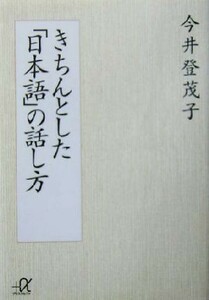 今井登茂子
きちんとした
「日本語」の話し方
+α